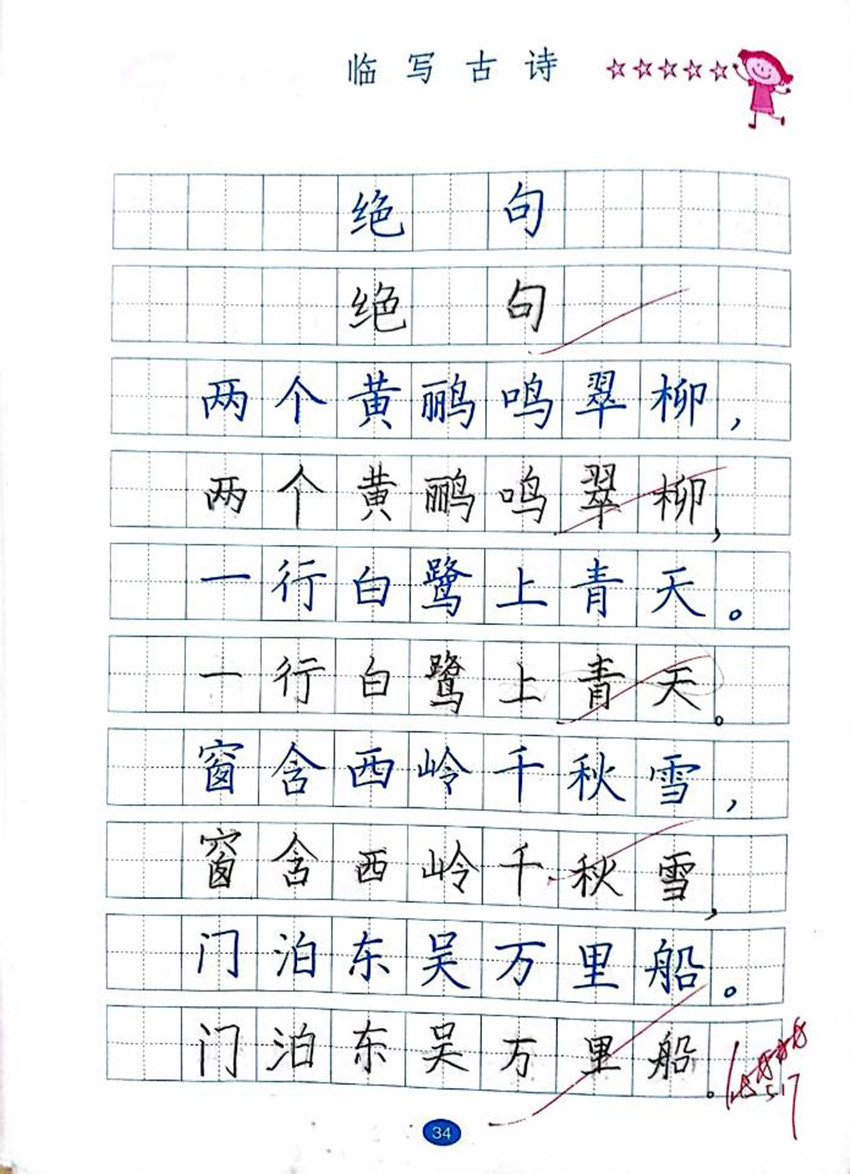 临写古诗
绝句
绝句
两个黄鹂鸣翠柳，
两个黄鹂鸣翠柳，
一行白鹭上青天。
一行白鹭上青天。
窗含西岭千秋雪，
窗含西岭千秋雪，
门泊东吴万里船。
门泊东吴万里船。
5.17
34